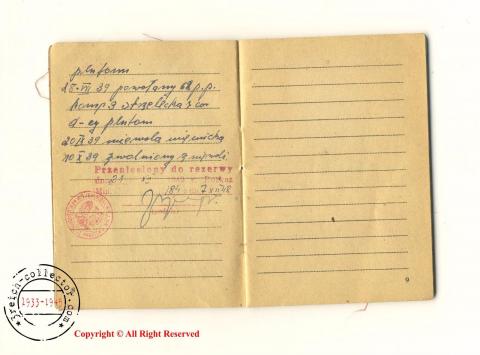 pluton
25.VIII 39 powołany 62 p.p.
komp 3 strzelecka z-ca
d-cy pluton
20 IX 39 niewola niemiecka
10 X 39 zwolniony z niewoli
Przeniesiony do rezerwy
dn. 21
184 7 XII 48
9
3reich-collector.com
1933-1945
Copyright © All Right Reserved